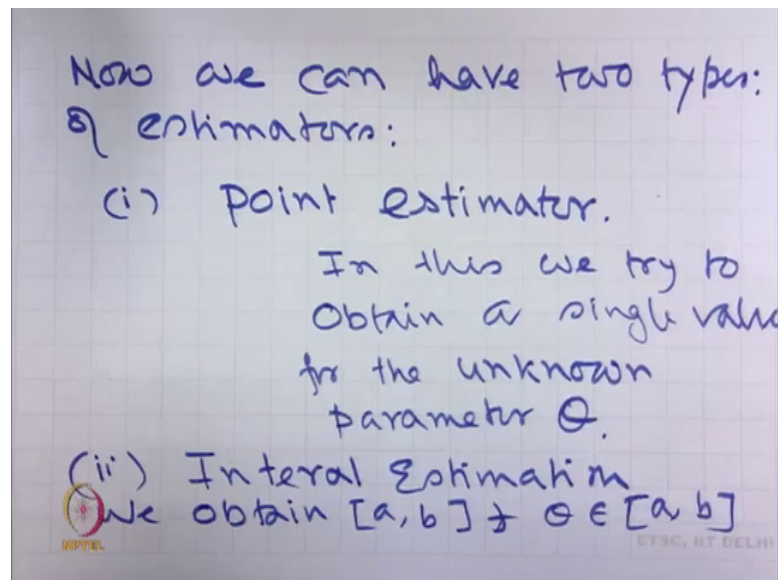 Now we can have two types:
of estimators:
(i) Point estimator.
In this we try to
Obtain a single value
for the unknown
parameter θ.
(ii) Interal Estimation
We obtain [a, b] ∋ θ ∈ [a, b]
NPTEL
ETSC, IIT DELHI